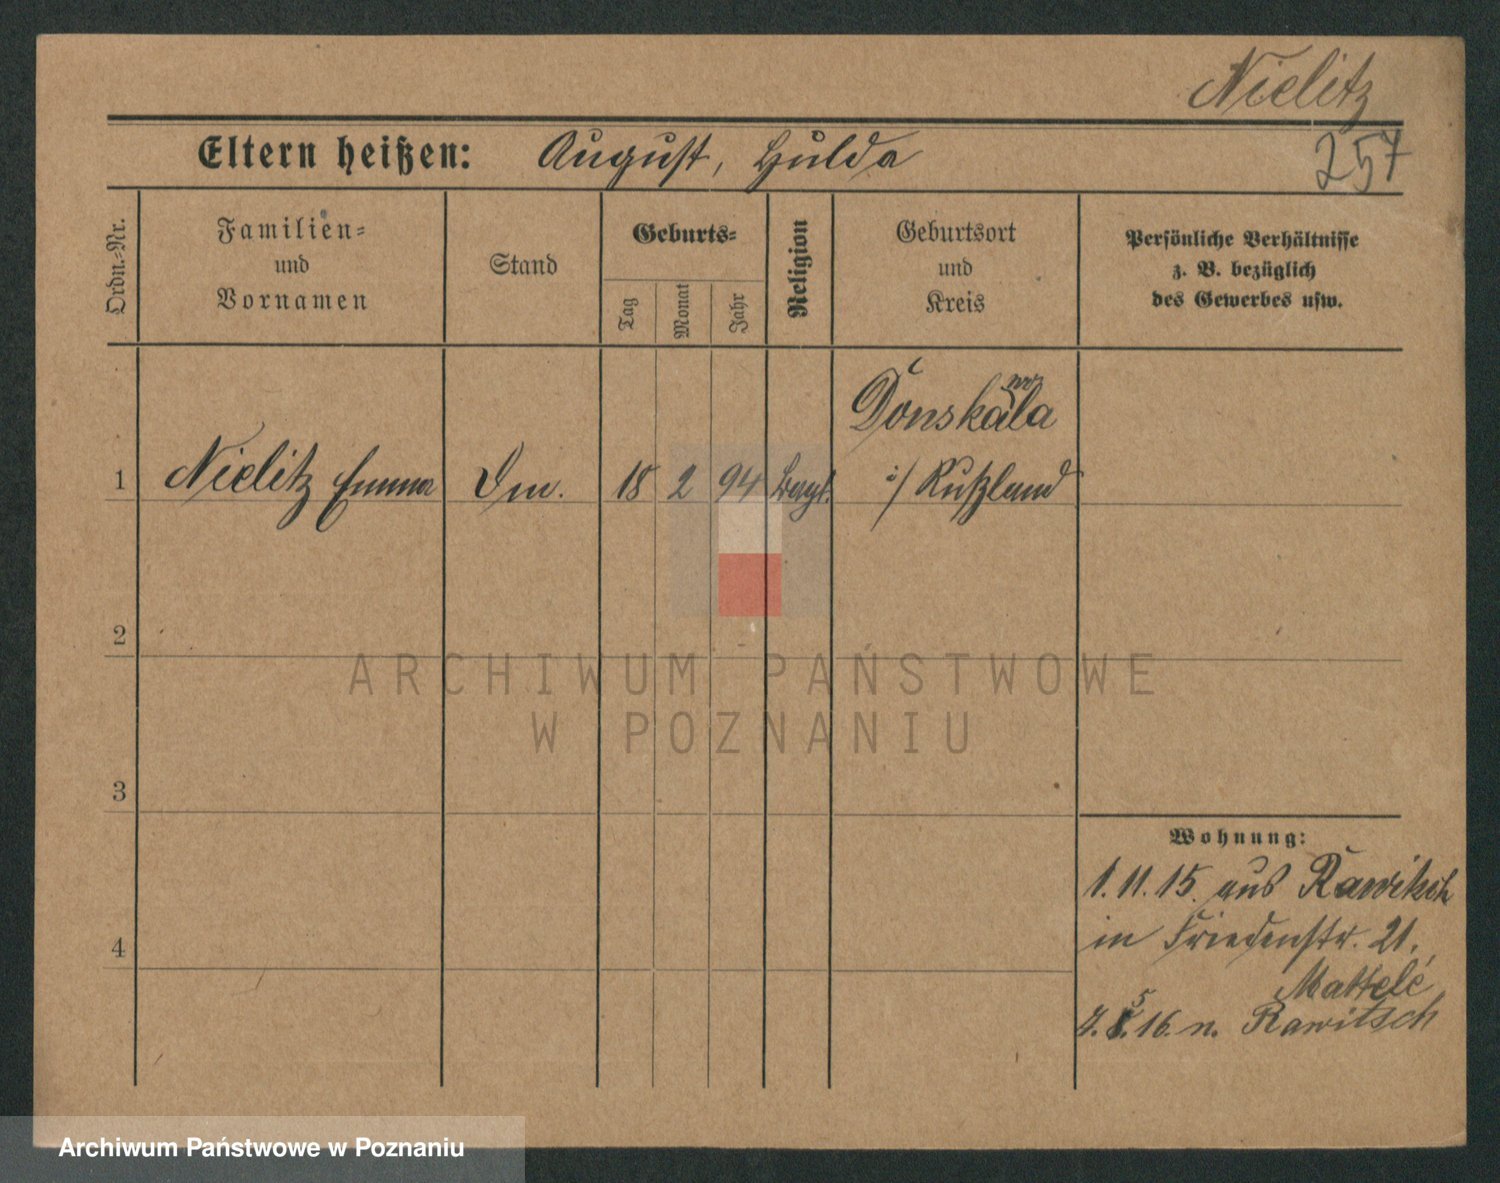 Nielitz
257
Eltern heißen: August, Hulda
Ordn.-Nr.
Familien-
und
Vornamen
Stand
Geburts-
Tag
Monat
Jahr
Religion
Geburtsort
und
Kreis
Persönliche Verhältnisse
z. B. bezüglich
des Gewerbes usw.
1 Nielitz Emma 18 2 94
i/ Rußland
2
3
4
Wohnung:
1.11.15. aus Rawitsch
in Friedenstr. 21.
16. n. Rawitsch
ARCHIWUM PAŃSTWOWE
W POZNANIU
Archiwum Państwowe w Poznaniu